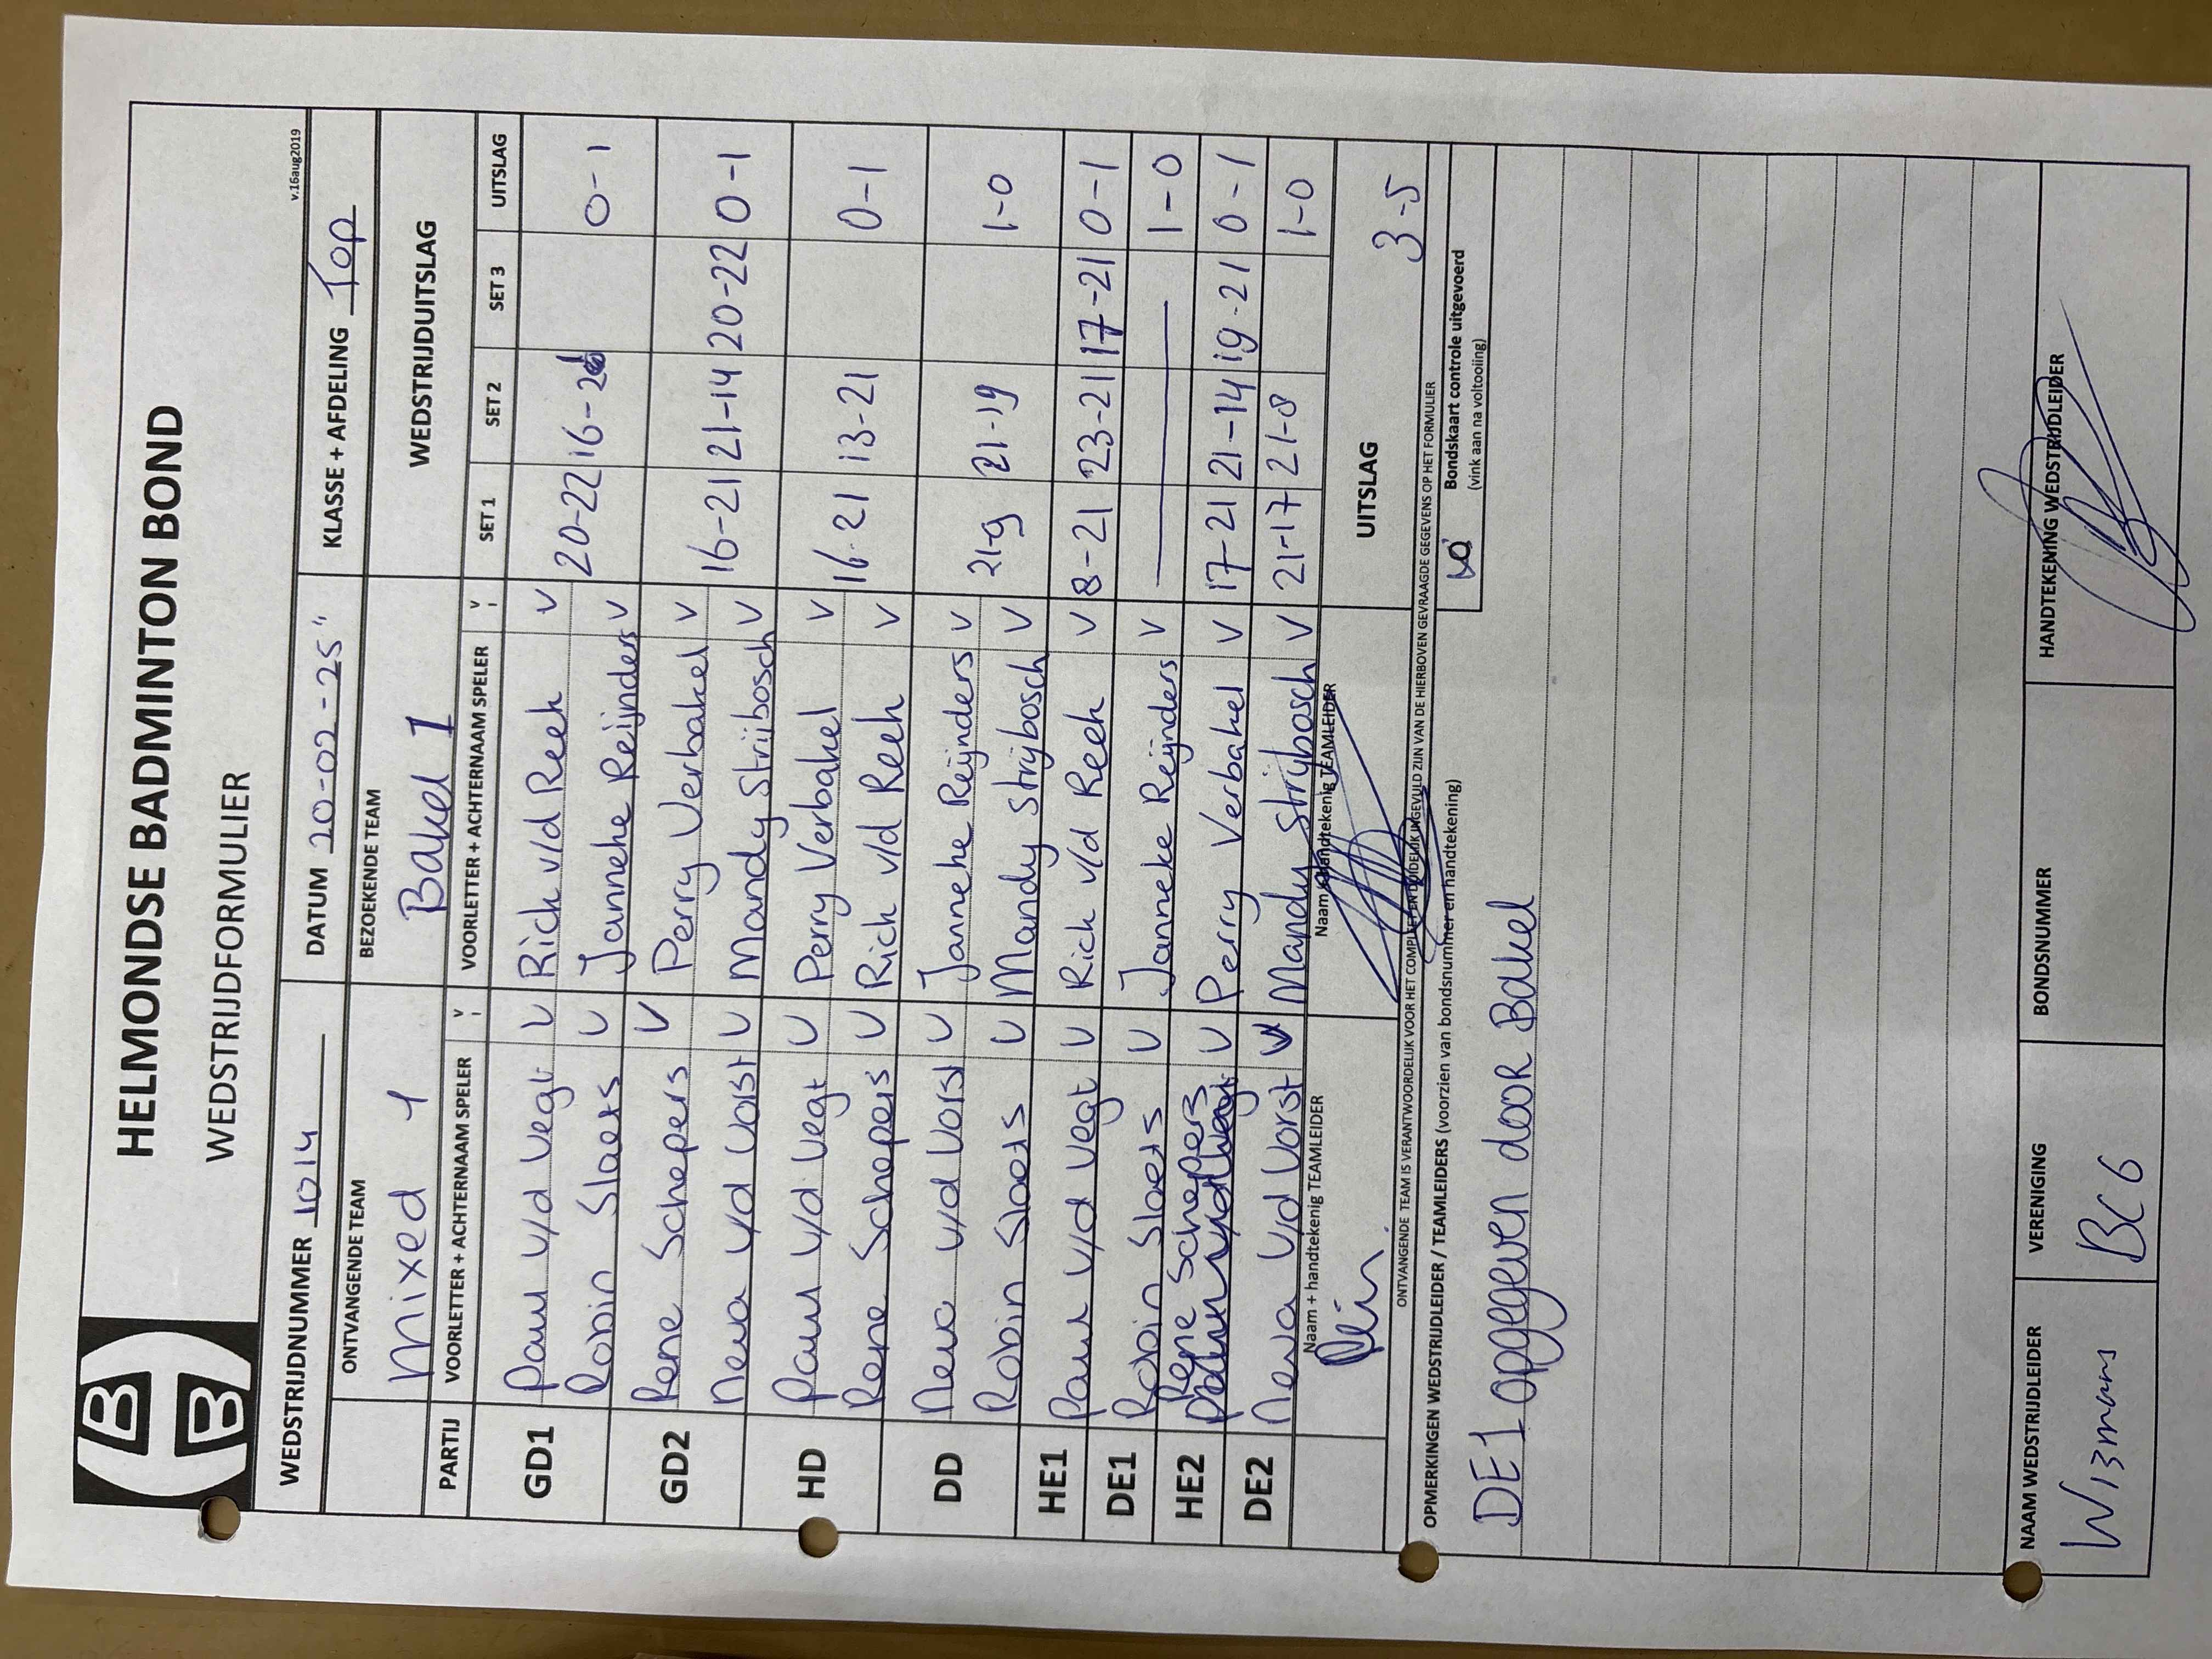 HELMONDSE BADMINTON BOND
WEDSTRIJDFORMULIER
v.16aug2019
WEDSTRIJDNUMMER 1014 DATUM 20-02-25" KLASSE + AFDELING Top
ONTVANGENDE TEAM BEZOEKENDE TEAM WEDSTRIJDUITSLAG
Mixed 1 Bakel 1
PARTIJ VOORLETTER + ACHTERNAAM SPELER V VOORLETTER + ACHTERNAAM SPELER V SET 1 SET 2 SET 3 UITSLAG
GD1 Paul v/d Vegt V Rich v/d Reek V 20-22 16-21 0-1
Robin Slaets V Janneke Reijnders V
GD2 Rene Schepers V Perry Verbakel V 16-21 21-14 20-22 0-1
Neva v/d Vorst V Mandy Strijbosch V
HD Paul v/d Vegt V Perry Verbakel V 16-21 13-21 0-1
Rene Schepers V Rich v/d Reek V
DD Neva v/d Vorst V Janneke Reijnders V 21-9 21-19 1-0
Robin Slaets V Mandy Strijbosch V
HE1 Paul v/d Vegt V Rich v/d Reek V 8-21 23-21 17-21 0-1
DE1 Robin Slaets V Janneke Reijnders V 1-0
HE2 Rene Schepers V Perry Verbakel V 17-21 21-14 19-21 0-1
DE2 Neva v/d Vorst V Mandy Strijbosch V 21-17 21-8 1-0
Naam + handtekenig TEAMLEIDER Naam + handtekenig TEAMLEIDER UITSLAG 3-5
ONTVANGENDE TEAM IS VERANTWOORDELIJK VOOR HET COMPLEET EN DUIDELIJK INGEVULD ZIJN VAN DE HIERBOVEN GEVRAAGDE GEGEVENS OP HET FORMULIER
OPMERKINGEN WEDSTRIJDLEIDER / TEAMLEIDERS (voorzien van bondsnummer en handtekening) Bondskaart controle uitgevoerd
(vink aan na voltooiing)
DE1 opgegeven door Bakel
NAAM WEDSTRIJDLEIDER VERENIGING BONDSNUMMER HANDTEKENING WEDSTRIJDLEIDER
BC6